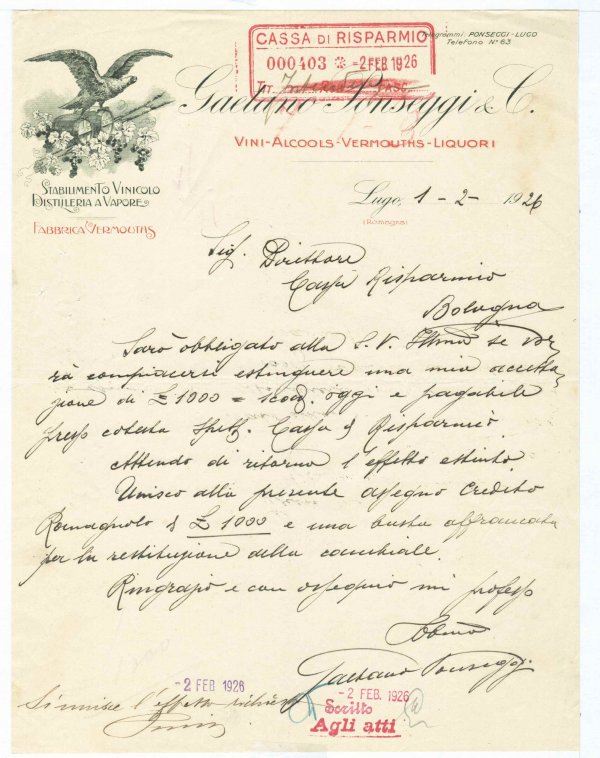 CASSA DI RISPARMIO
000403 ※ -2 FEB 1926
TIT. FASC.
Telegrammi: PONSEGGI-LUGO
Telefono N° 63
Gaetano Ponseggi & C.
VINI-ALCOOLS-VERMOUTHS-LIQUORI
STABILIMENTO VINICOLO
DISTILLERIA A VAPORE
FABBRICA VERMOUTHS
Lugo, 1-2-1926
(Romagna)
Sig. Direttore
Cassa Risparmio
Bologna
Sarò obbligato alla S. V. Ill.ma se vor-
rà compiacersi estinguere una mia accetta-
zione di £ 1000 = scad. oggi e pagabile
presso cotesta Spett. Cassa di Risparmio.
Attendo di ritorno l'effetto estinto.
Unisco alla presente assegno Credito
Romagnolo di £ 1000 e una busta affrancata
per la restituzione della cambiale.
Ringrazio e con ossequio mi professo
Gaetano Ponseggi
-2 FEB 1926
-2 FEB. 1926
Scritto
Agli atti
Si unisce l'effetto